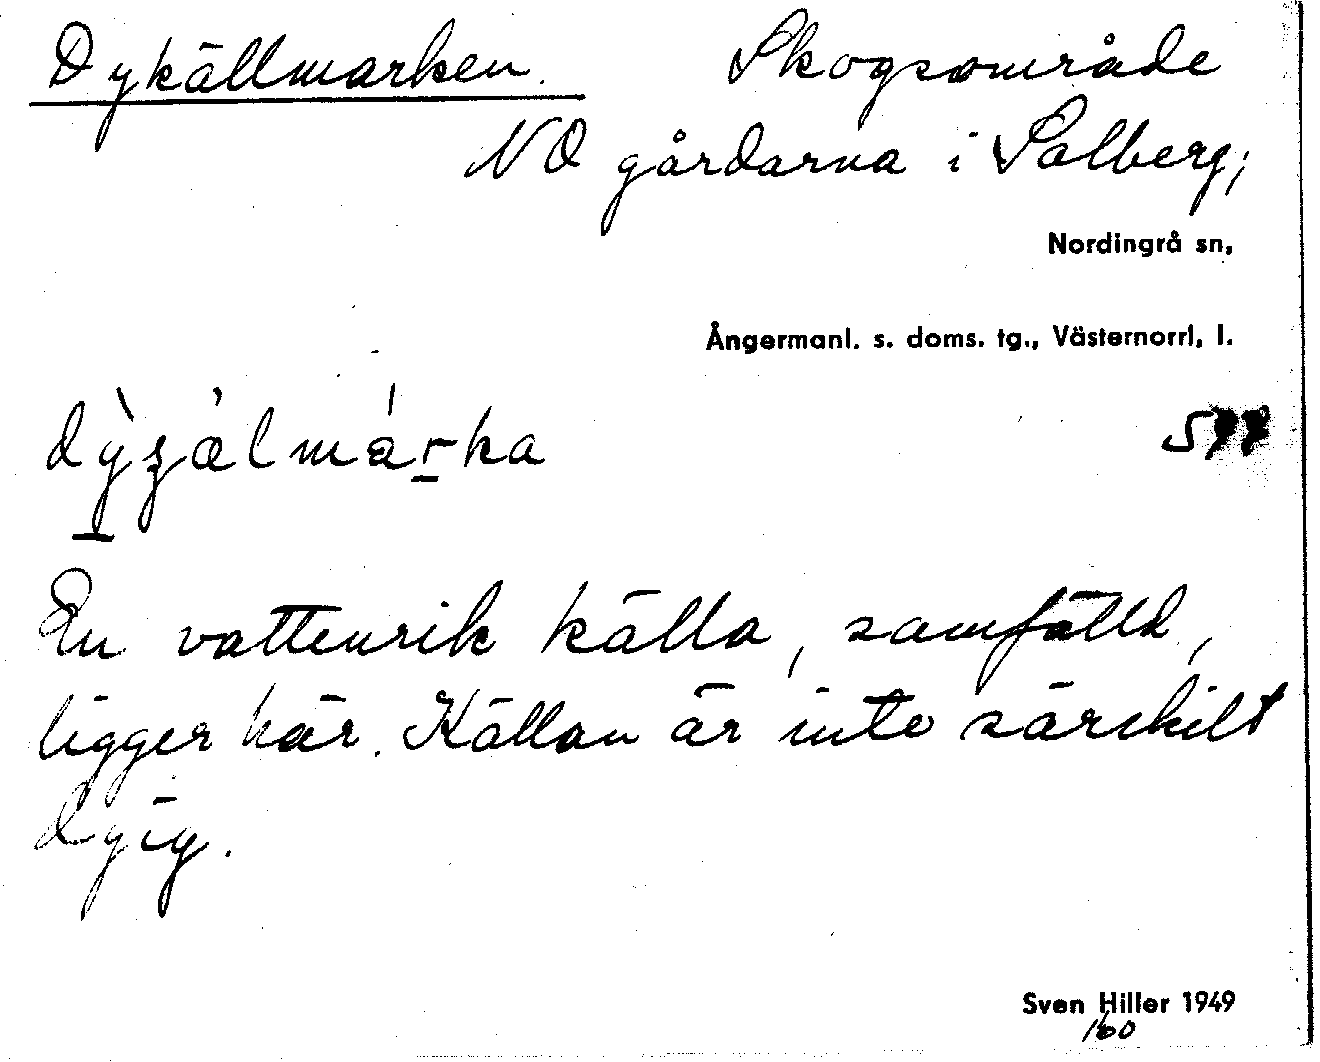 Dykällmarken. Skogsområde
NO gårdarna i Salberg,
Nordingrå sn,
Ångermanl. s. doms. tg., Västernorrl, l.
En vattenrik källa, samfälld,
ligger här. Källan är inte särskilt
dyig.
Sven Hiller 1949
160